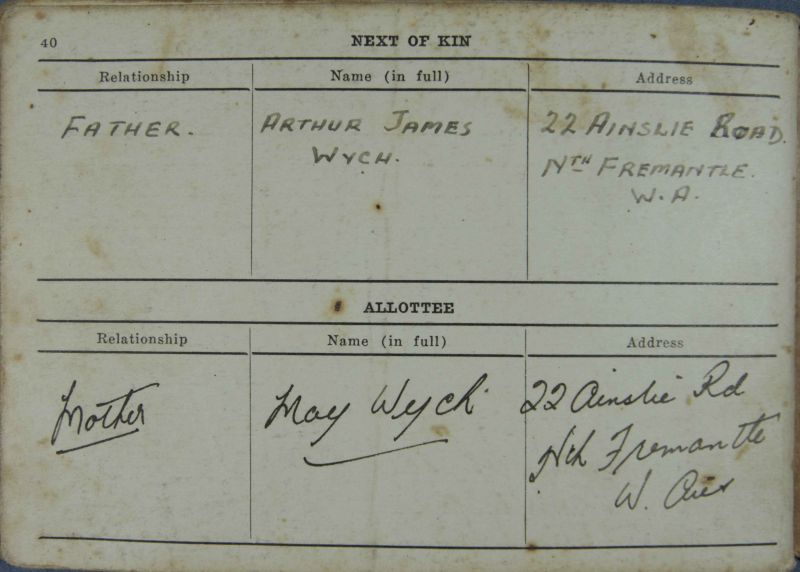 40
NEXT OF KIN
Relationship Name (in full) Address
FATHER. ARTHUR JAMES 22 AINSLIE ROAD.
WYCH. NTH FREMANTLE.
W.A.
ALLOTTEE
Relationship Name (in full) Address
Mother May Wych 22 Ainslie Rd
Nth Fremantle
W. Aus